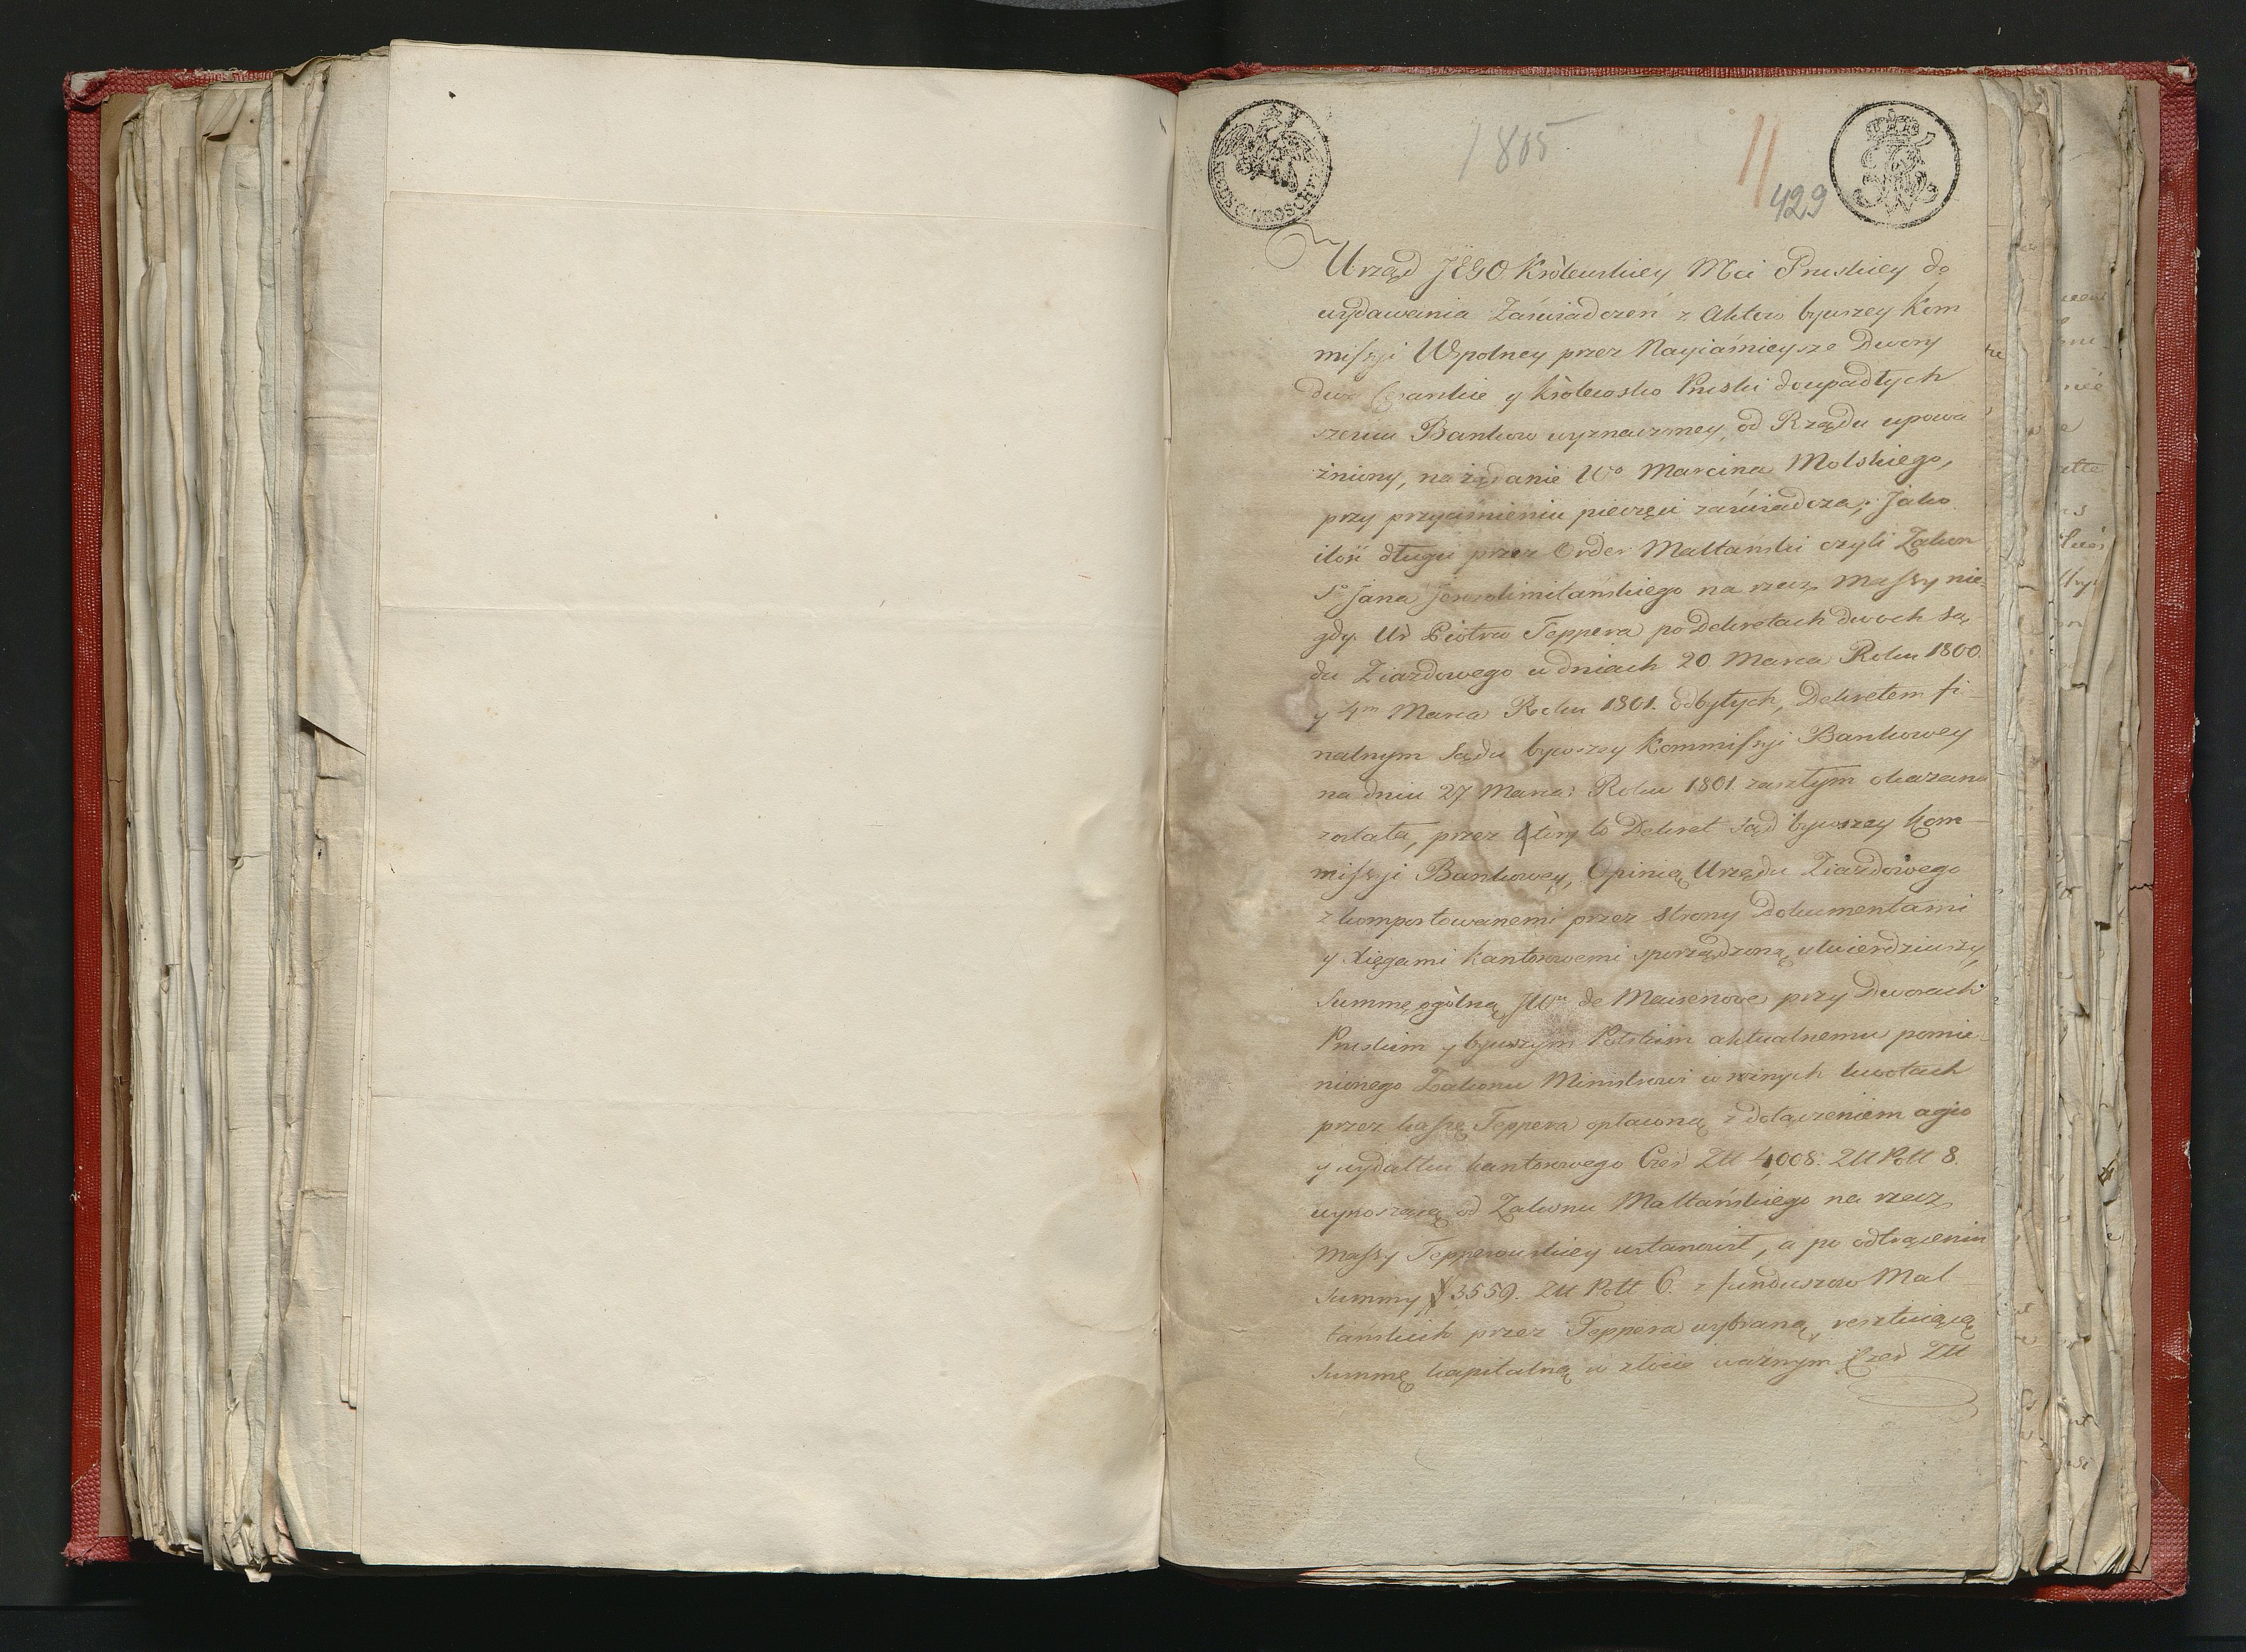 1805
11
429
Urząd JEGO Królewskiey Mci Pruskiey do
wydawania Zaświadczeń z Aktow bywszey Kom
mifsyi Wspolney przez Nayiaśnieysze Dwory
dwa Cesarskie y Królewsko Pruski do upadłych
Bankow wyznaczoney, od Rządu upowa
żniony, na żądanie Wo Marcina Molskiego,
przy przyciśnieniu pieczęci zaświadcza; Jako
ilość długu przez Order Maltański czyli Zakon
So Jana Jerozolimitańskiego na rzecz Mafsy nie
gdy Ur Piotra Teppera po Dekretach dwoch Są
du Ziazdowego w dniach 20 Marca Roku 1800.
y 4m Marca Roku 1801. odbytych, Dekretem fi
nalnym Sądu bywszey Kommifsyi Bankowey
na dniu 27 Marca Roku 1801. zaszłym okazana
została, przez który to Dekret Sąd bywszey Kom
mifsyi Bankowey, Opinią Urzędu Ziazdowego
z komportowanemi przez strony Dokumentami
y Xięgami Kantorowemi sporządzoną utwierdziwszy,
Summę ogólną JW de Maisenove przy Dworach
Pruskim y bywszym Polskim aktualnemu pomie
nionego Zakonu Ministrowi w roznych kwotach
przez kafsę Teppera opłaconą z dołączeniem agio
y wydatku kantorowego Czer Zll 4,008. Zll Poll 8.
wynoszącą od Zakonu Maltańskiego na rzecz
Mafsy Tepperowskiey ustanowił, a po odtrąceniu
Summy 3559. Zll Poll 6. z funduszow Mal
tańskich przez Teppera wybraną, resztuiącą
Summę kapitalną w złocie ważnym Czer Zll